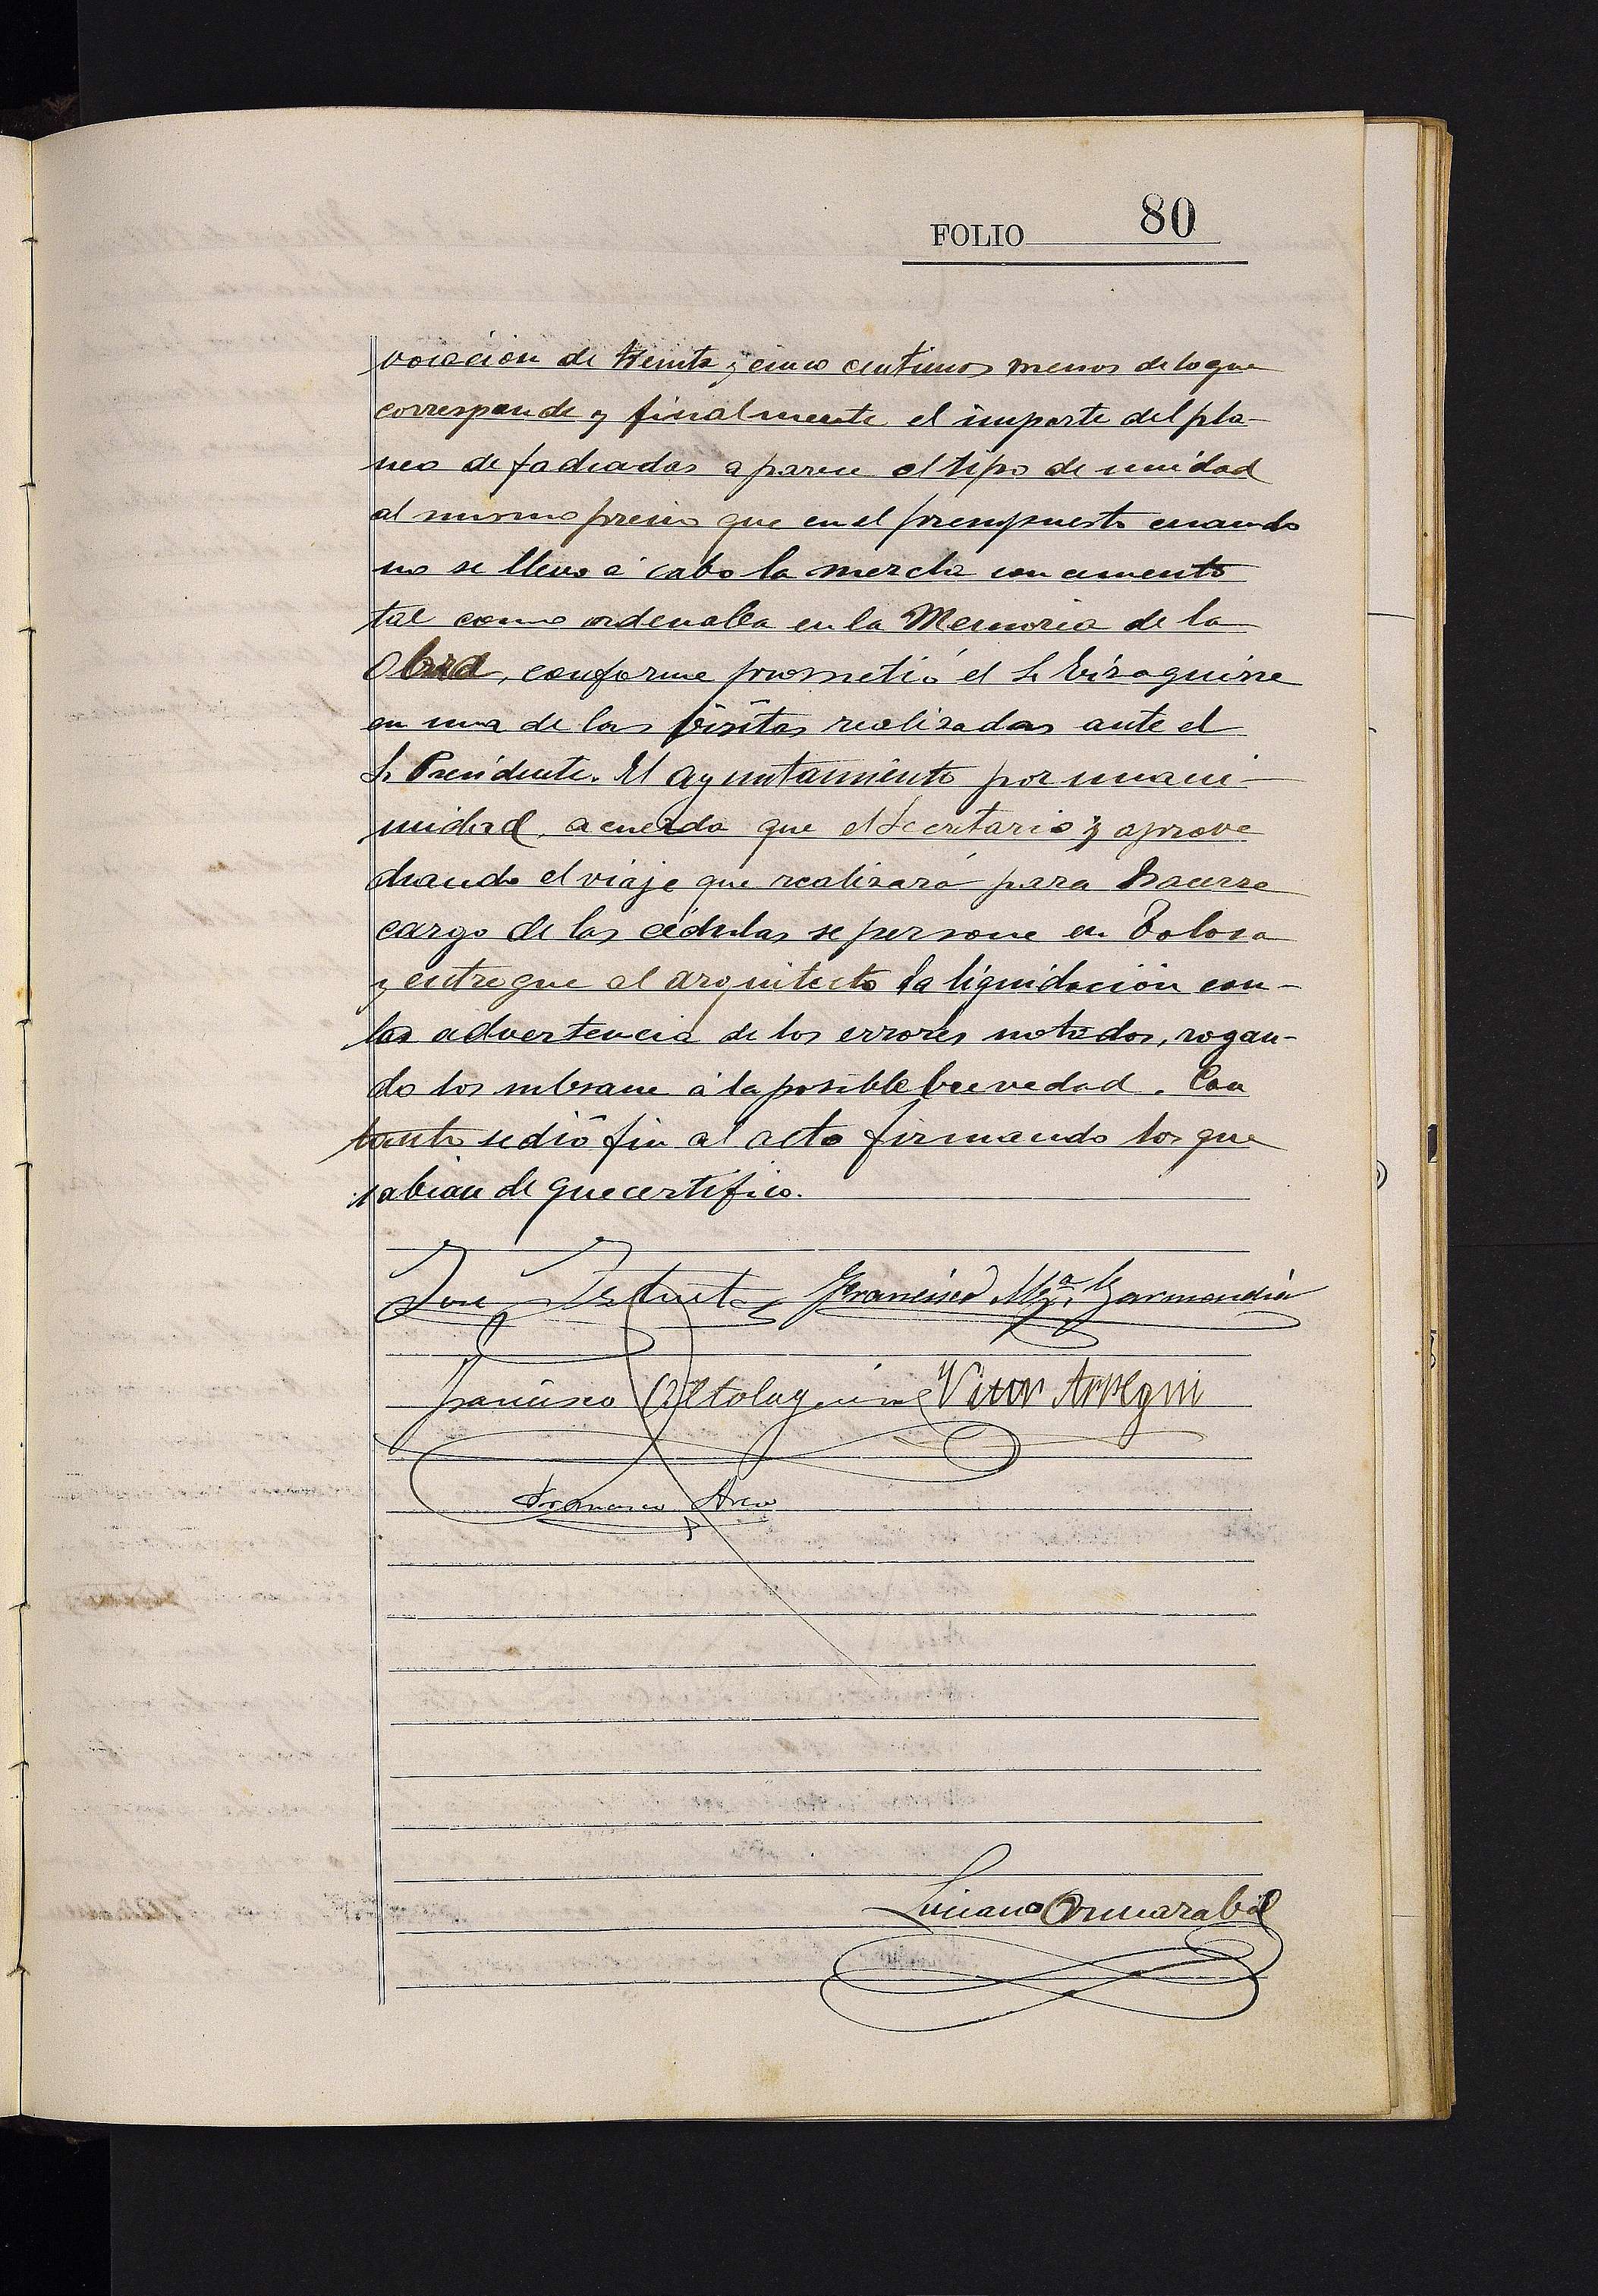 FOLIO 80
vocacion de treinta y cinco centimos menos de lo que
corresponde y finalmente el importe del pla-
neo de fachadas aparece el tipo de unidad
al mismo precio que en el presupuesto cuando
no se llevo á cabo la mezcla con cemento
tal como ordenaba en la Memoria de la
Obra, conforme prometió el Sr Eizaguirre
en una de las visitas realizadas ante el
Sr Presidente. El ayuntamiento por unani-
midad acuerda que el Secretario y aprove
chando el viaje que realizará para hacerse
cargo de las cédulas se persone en Tolosa
y entregue al arquitecto la liquidación con-
las advertencia de los errores notados, rogan-
do los subsane á la posible brevedad. Con
tanto se dió fin al acto firmando los que
sabian de que certifico.
José Francisco Mª Garmendia
Francisco Altolaguirre Vitor Arregui
Francisco
Luciano Ormazabal